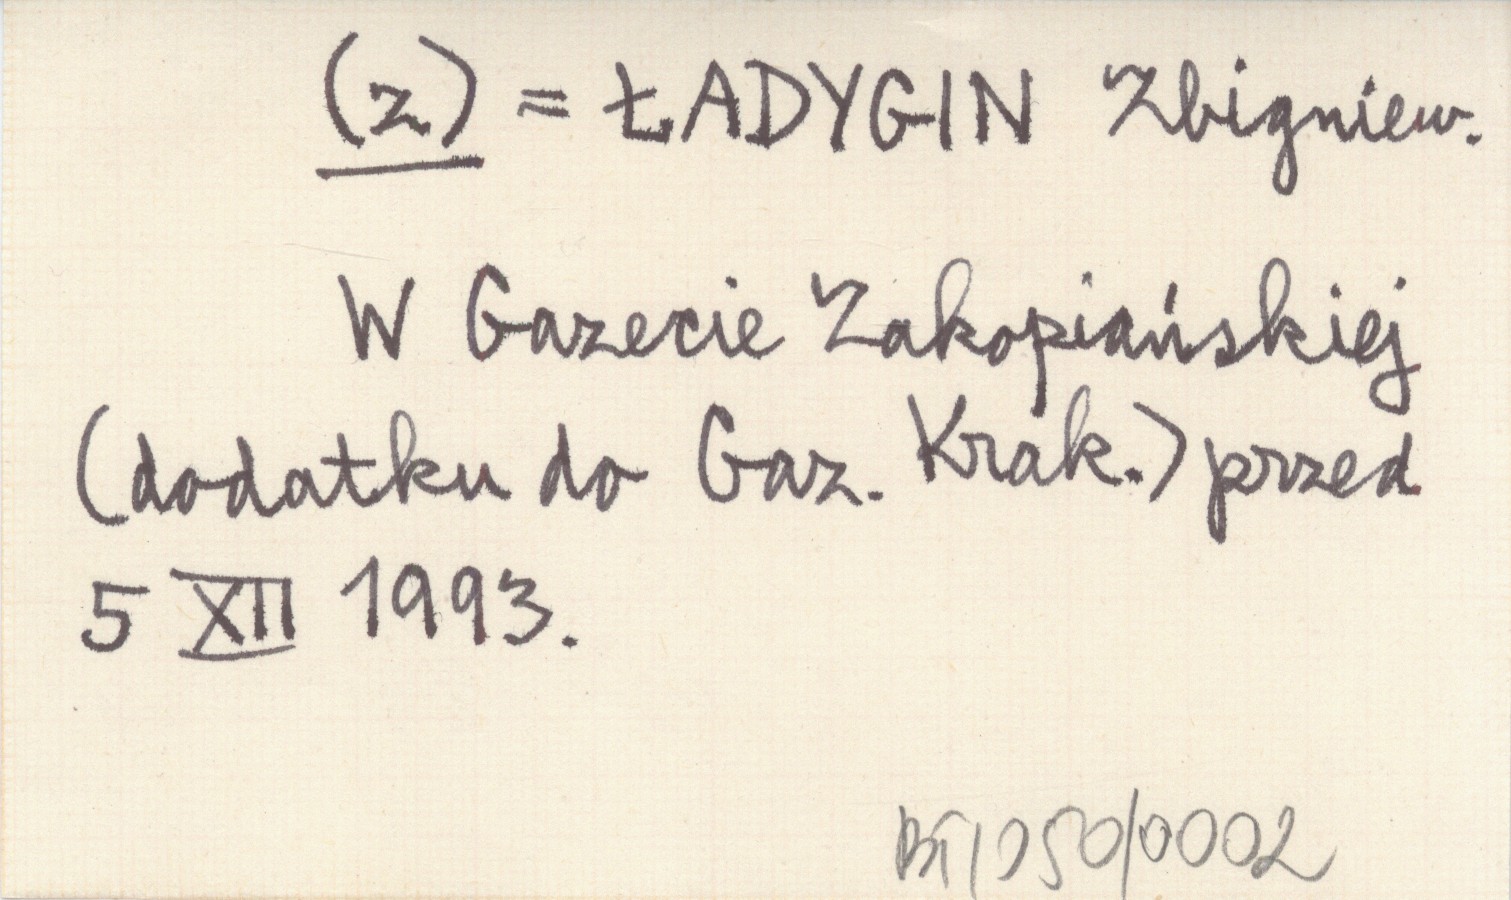 (z) = ŁADYGIN Zbigniew.
W Gazecie Zakopiańskiej
(dodatku do Gaz. Krak.) przed
5 XII 1993.